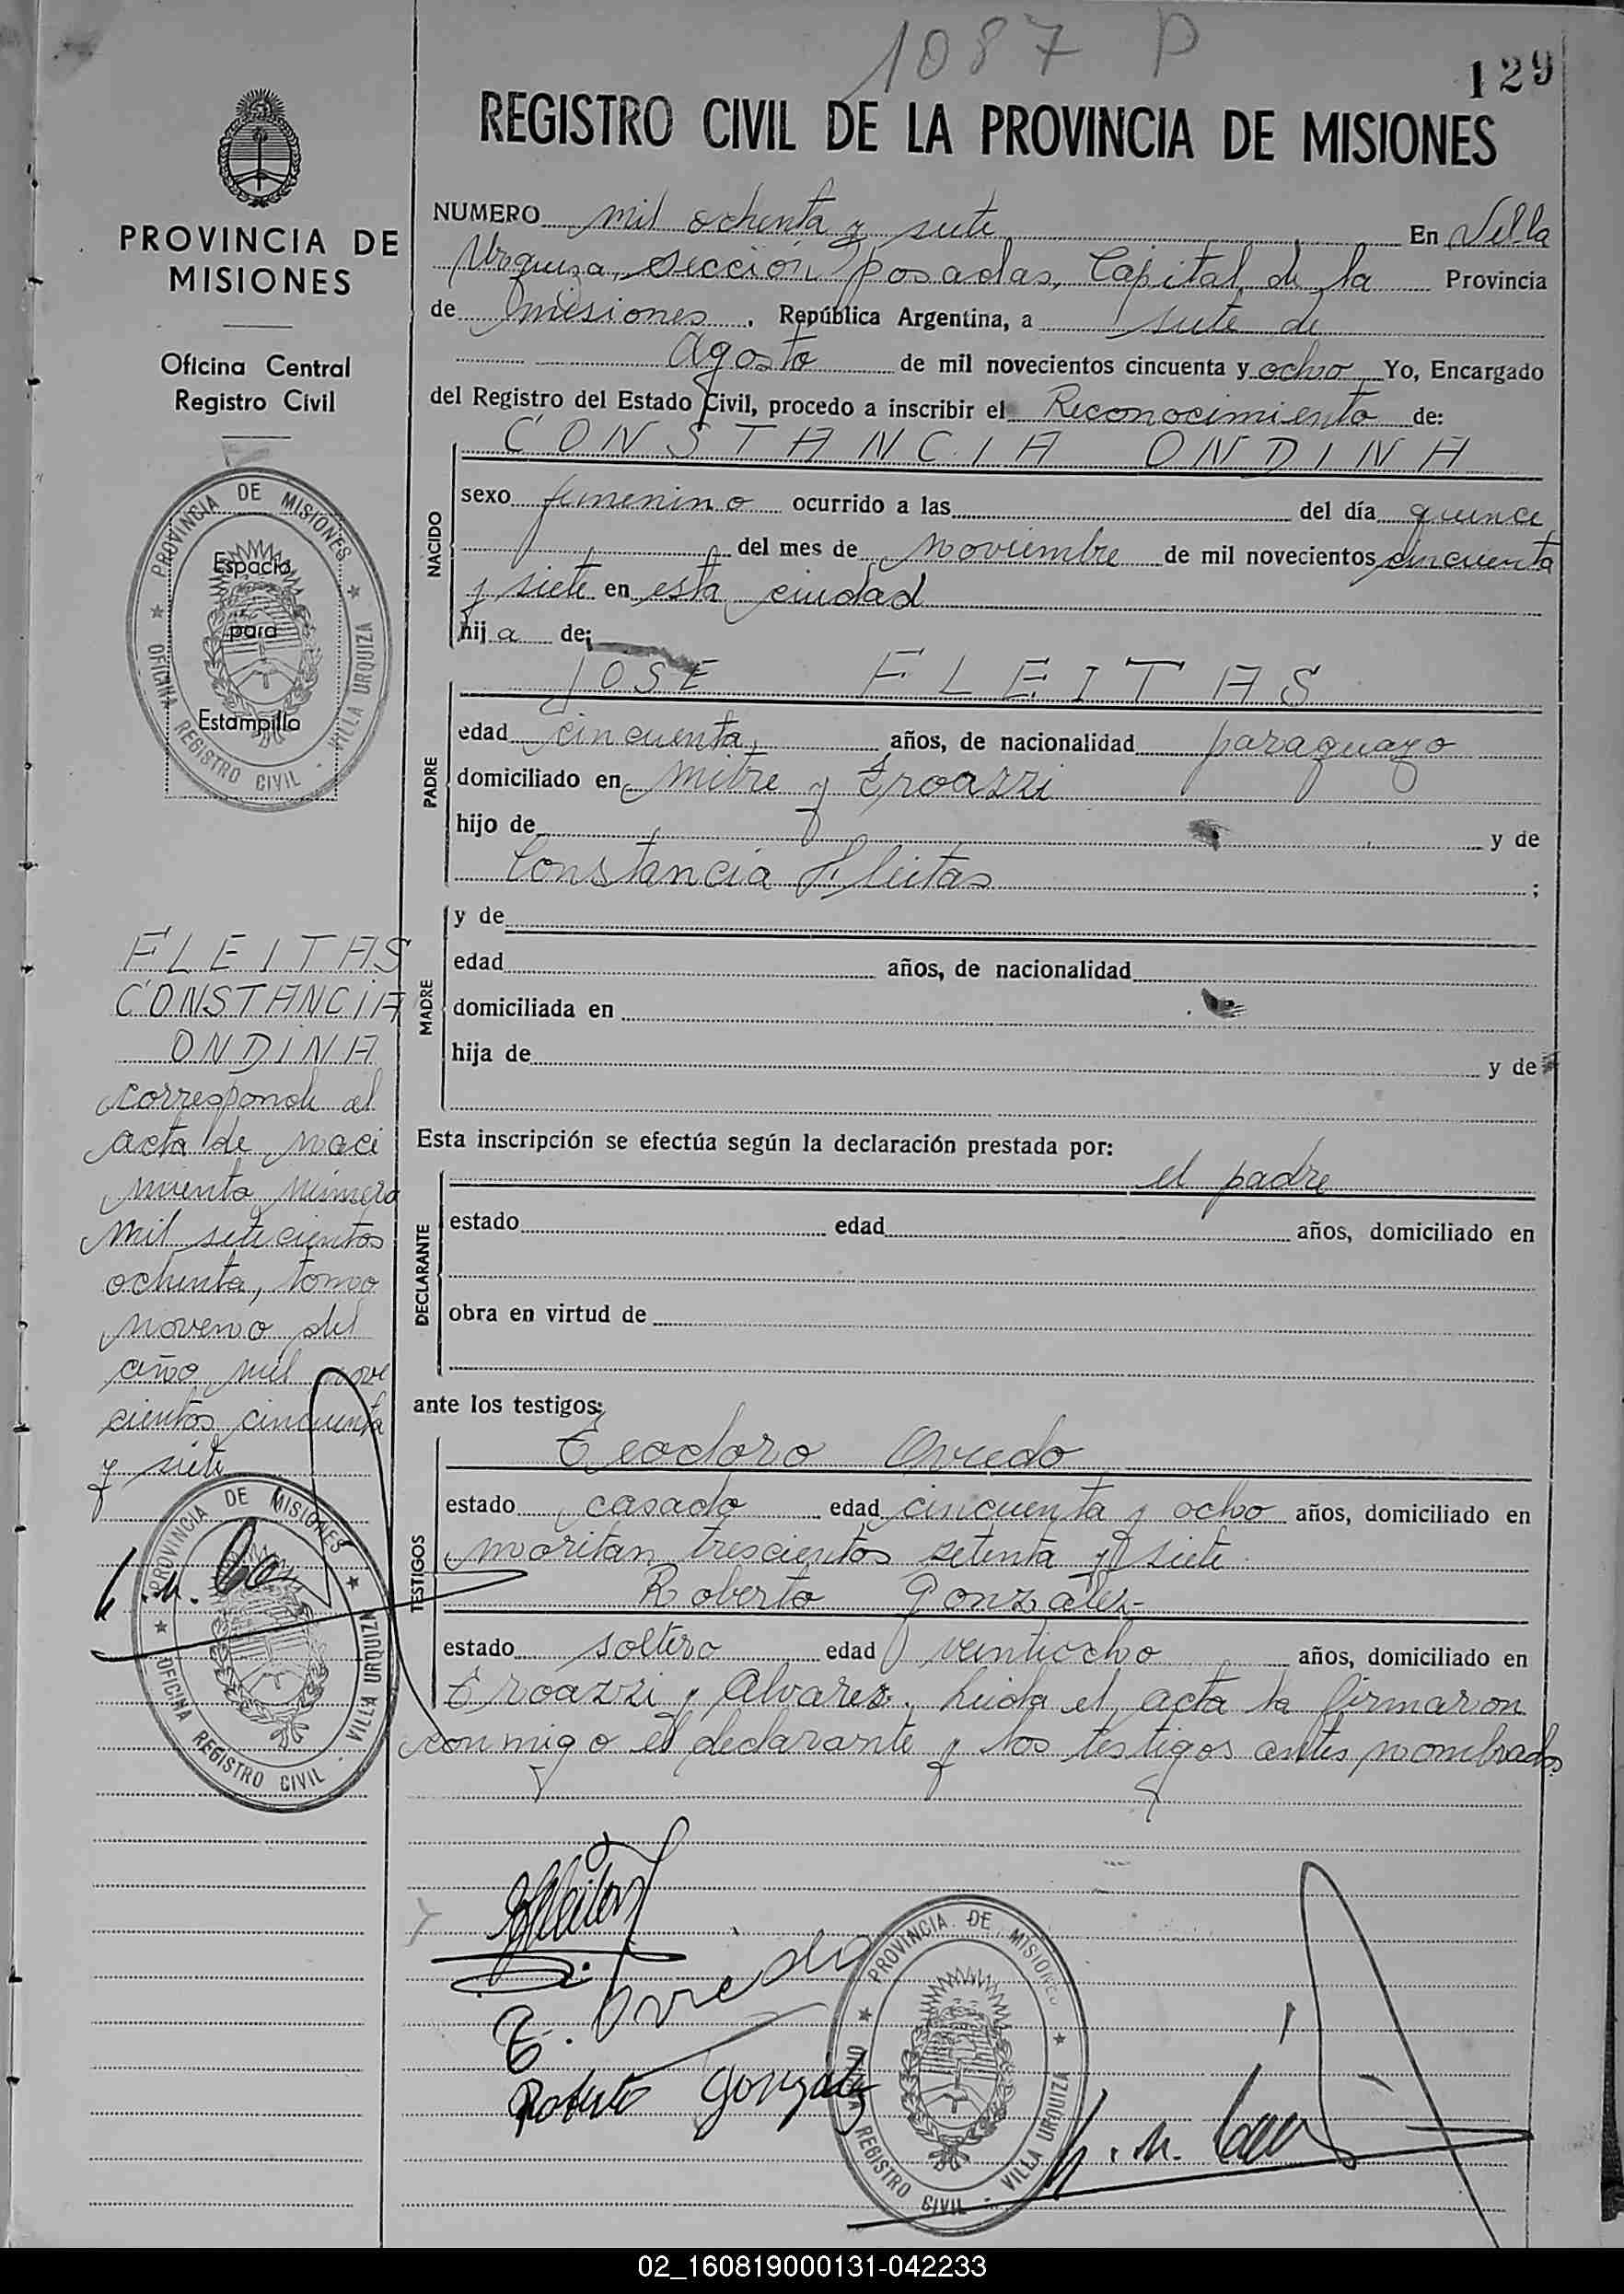 1087 P
129
REGISTRO CIVIL DE LA PROVINCIA DE MISIONES
PROVINCIA DE
MISIONES
Oficina Central
Registro Civil
PROVINCIA DE MISIONES
OFICINA REGISTRO CIVIL - VILLA URQUIZA
Espacio
para
Estampilla
FLEITAS
CONSTANCIA
ONDINA
corresponde al
acta de naci
miento número
mil setecientos
ochenta, tomo
noveno del
año mil nove
cientos cincuenta
y siete
PROVINCIA DE MISIONES
OFICINA REGISTRO CIVIL - VILLA URQUIZA
NUMERO mil ochenta y siete En Villa
Urquiza, sección Posadas, Capital de la Provincia
de Misiones. República Argentina, a siete de
Agosto de mil novecientos cincuenta y ocho Yo, Encargado
del Registro del Estado Civil, procedo a inscribir el Reconocimiento de:
CONSTANCIA ONDINA
NACIDO
sexo femenino ocurrido a las del día quince
del mes de noviembre de mil novecientos cincuenta
y siete en esta ciudad
hija de:
JOSE FLEITAS
PADRE
edad cincuenta, años, de nacionalidad paraguayo
domiciliado en mitre y
hijo de y de
Constancia Fleitas ;
MADRE
y de
edad años, de nacionalidad
domiciliada en
hija de y de
Esta inscripción se efectúa según la declaración prestada por:
el padre
DECLARANTE
estado edad años, domiciliado en
obra en virtud de
ante los testigos:
Teodoro Oviedo
TESTIGOS
estado casado edad cincuenta y ocho años, domiciliado en
moritan trescientos setenta y siete
Roberto Gonzalez
estado soltero edad veintiocho años, domiciliado en
y Alvarez. Leida el acta la firmaron
conmigo el declarante y los testigos antes nombrados
Fleitas
T. Oviedo
Roberto Gonzalez
PROVINCIA DE MISIONES
OFICINA REGISTRO CIVIL - VILLA URQUIZA
02_160819000131-042233